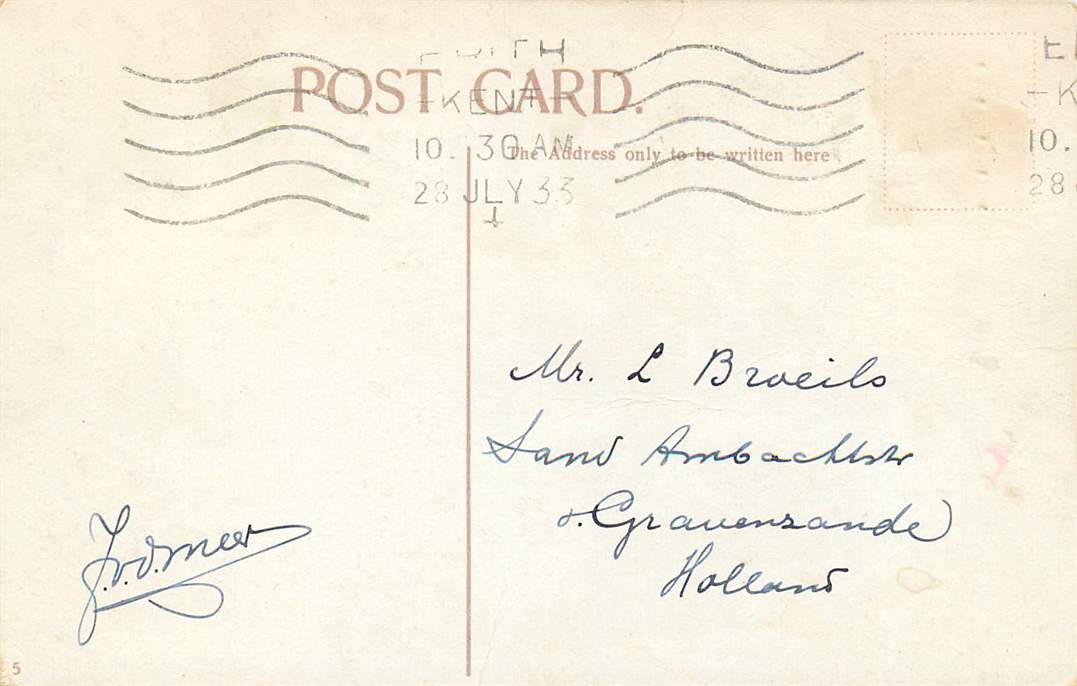 POST CARD.
The Address only to be written here
KENT
10. 30 AM
28 JLY 33
10.
28
Mr. L Broeils
Sand Ambachtstr
s. Gravenzande
Holland
J.v.d.meer
5